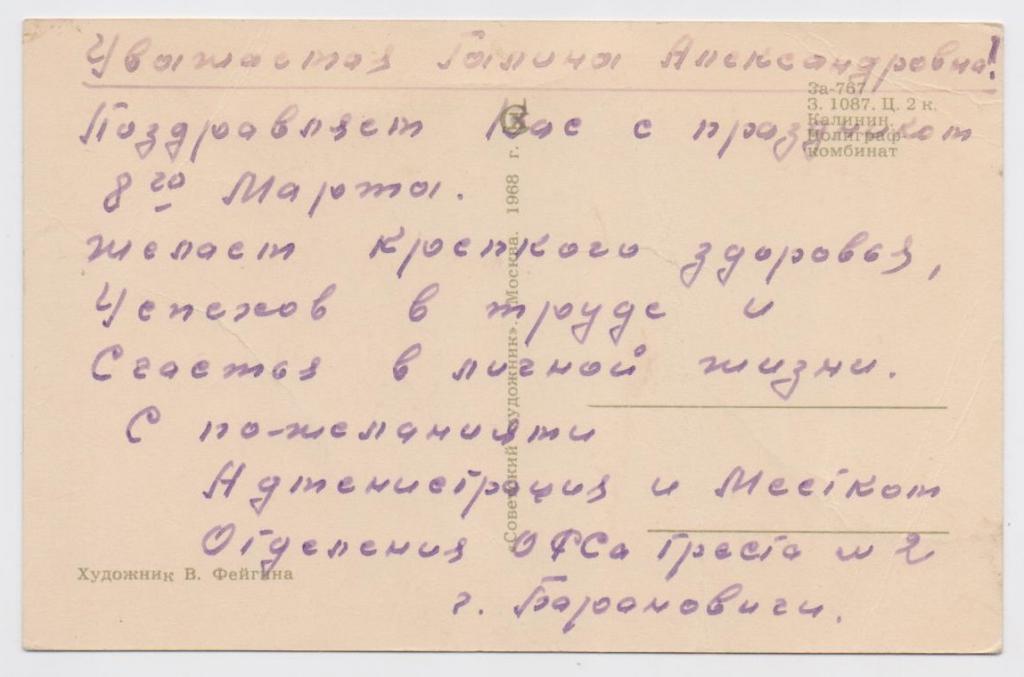 Уважаемая Галина Александровна!
За-767
З. 1087. Ц. 2 к.
Калинин.
Полиграф-
комбинат
Поздравляем Вас с праздником
8го Марта.
желаем крепкого здоровья,
Успехов в труде и
Счастья в личной жизни.
С по-желаниями
Администрация и Местком
Отделения ОФСа треста № 2
г. Барановичи.
«Советский художник». Москва. 1968 г.
Художник В. Фейгина